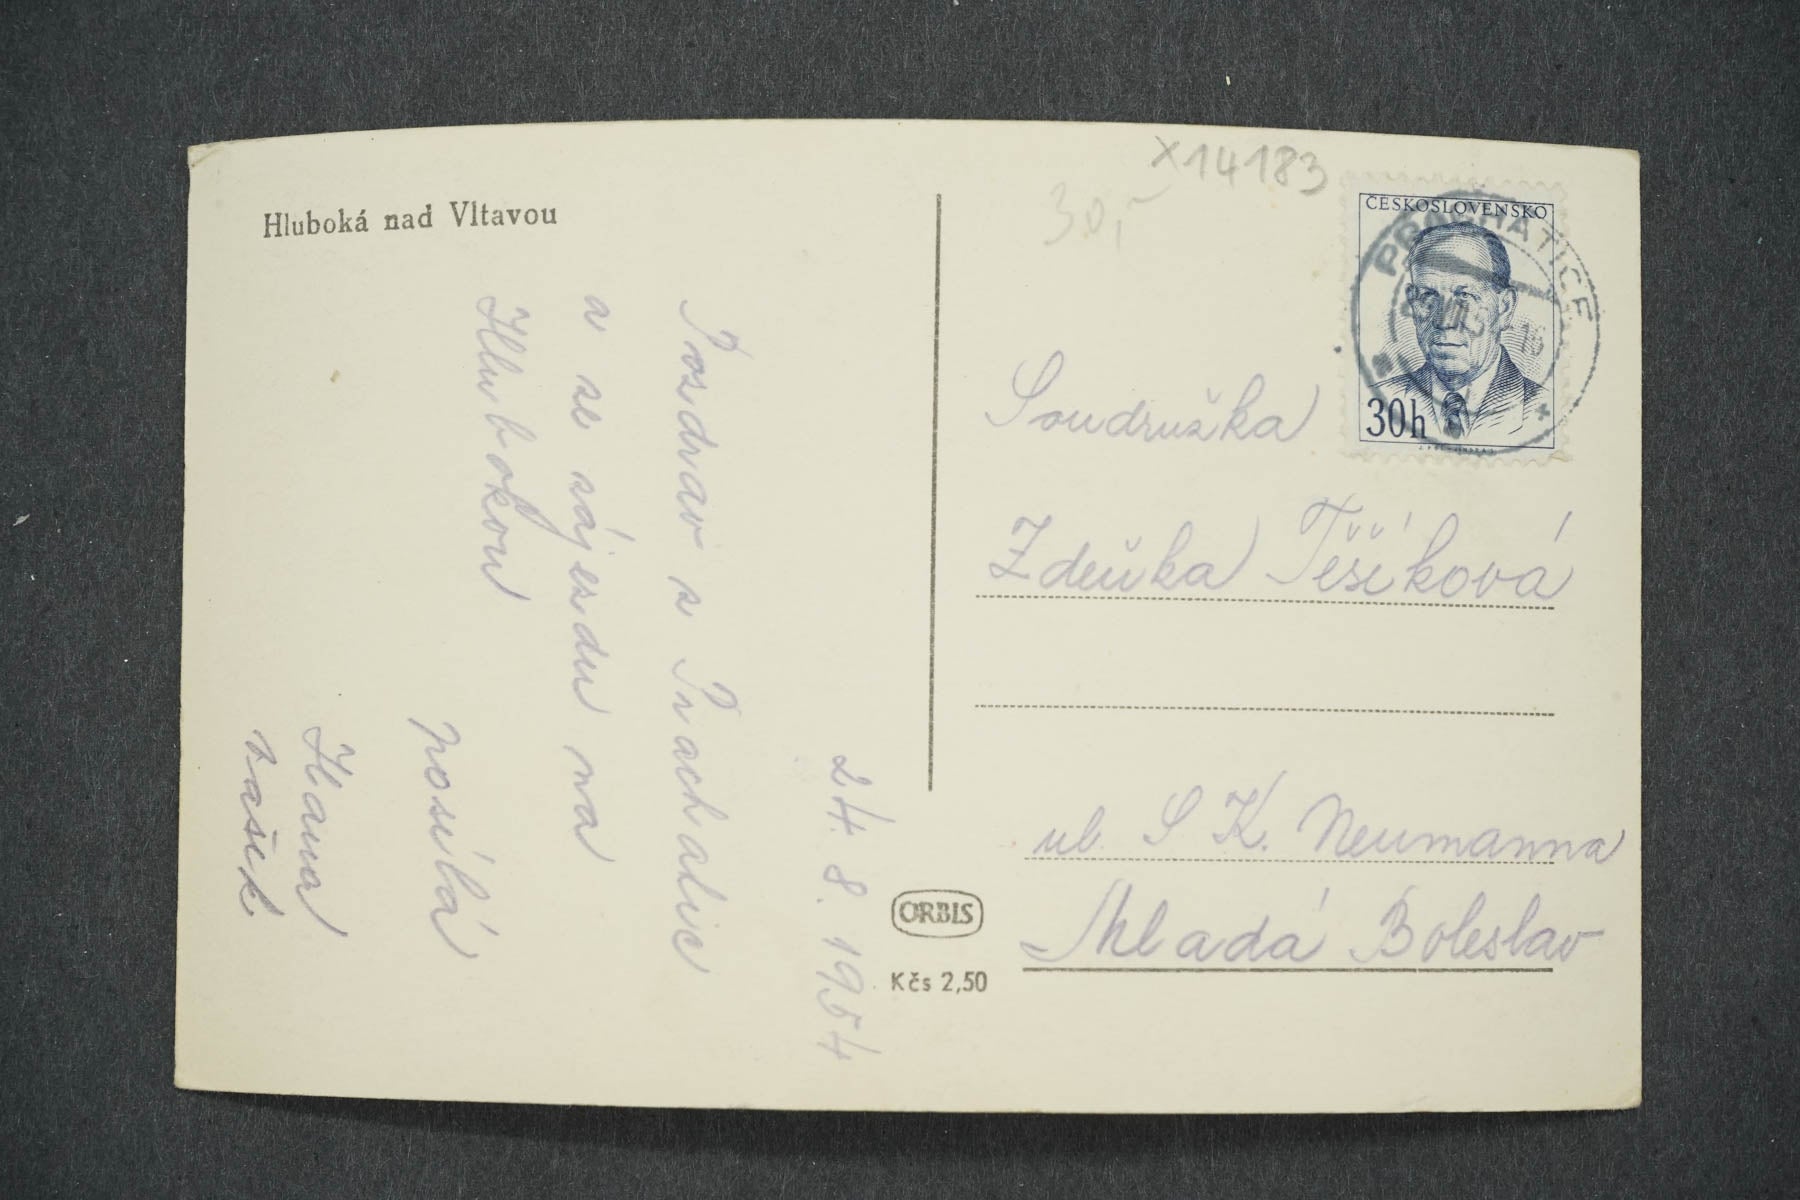 Hluboká nad Vltavou
24. 8. 1954
Pozdrav z Prachatic
a ze zájezdu na
Hlubokou
posílá
Hana
Vašek
x14183
30,-
ČESKOSLOVENSKO
30h
PRACHATICE
Soudružka
Zdeňka Těšíková
ul. S K. Neumanna
Mladá Boleslav
ORBIS
Kčs 2,50